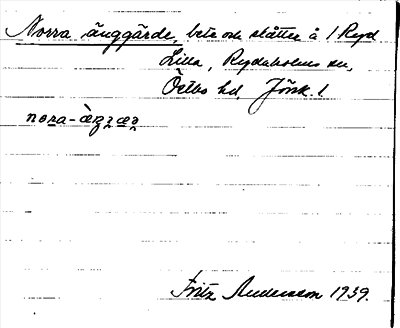 Norra änggärde, bete o. slåtter å 1 Ryd
Lilla, Rydaholms sn,
Östbo hd, Jönk. l.
nora-
Fritz Andersson 1939.